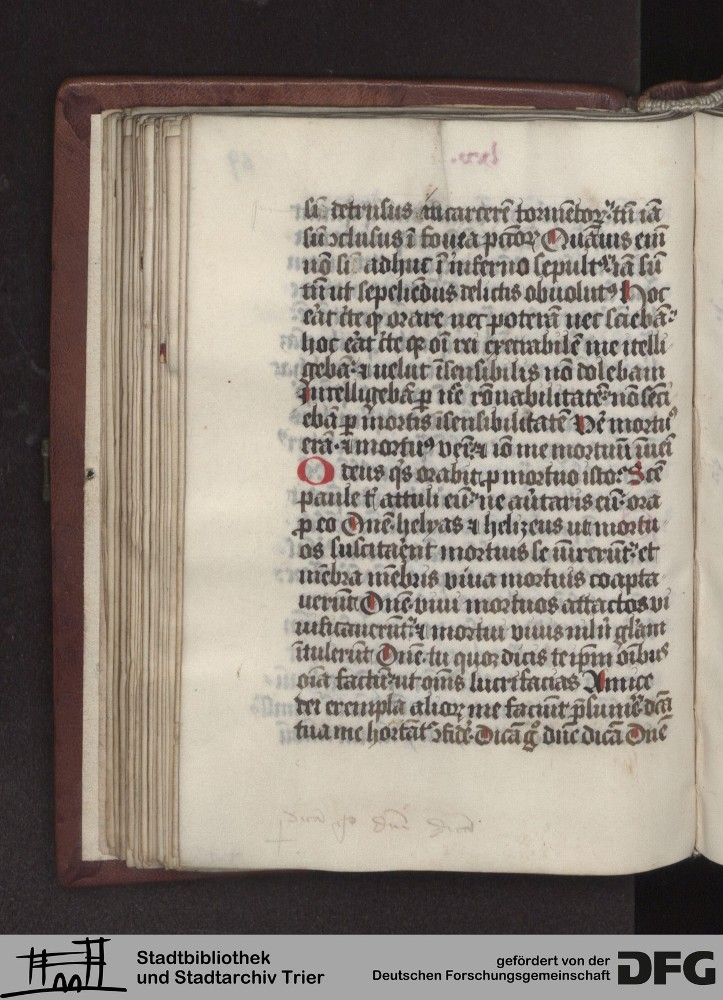 lxv.
sū detrusus in carcerē tormētoꝝ· tn̄ iā
sū ↄclusus ī fouea pctōꝝ Quāuis em̄
nō sū adhuc ī inferno sepultꝰ· iā sū
tn̄ ut sepeliēdus delictis obuolutꝰ Hoc
eāt ctē qꝫ orare nec poterā nec sciebā·
hoc eāt ctē qꝫ oī rei execrabilē me ītelli
gebā· ⁊ velut īsensibilis nō dolebam
Intelligebā ꝑ nē rōnabilitatē· nō sēci
ebā ꝑ mortis īsensibilitatē Nē mortuꝰ
erā· ⁊ mortuꝰ veni· ⁊ iō me mortuū
O deus qͥs orabit ꝓ mortuo isto· Scē
paule attuli eū· ne aūtaris eū· ora
ꝓ eo Dn̄e· helyas ⁊ helizeus ut mortu
os suscitarent mortuis se iūxerūt· et
mēbra mēbris viua mortuis coapta
uerūt Dn̄e· viui mortuos attactos vi
uificauerūt· ⁊ mortui viuis nil n̄ glām
ītulerūt Dn̄e· tu quoꝝ dicis te ip̄m oībus
oīa factū· ut om̄s lucrifacias Amice
dei exempla alioꝝ me faciūt p̄sumē· dcā
tua me hortāt ↄfidē· Dicā gͦ dn̄e dicā Dn̄e
dicā gͦ dn̄e dicā
Stadtbibliothek
und Stadtarchiv Trier
gefördert von der
Deutschen Forschungsgemeinschaft
DFG